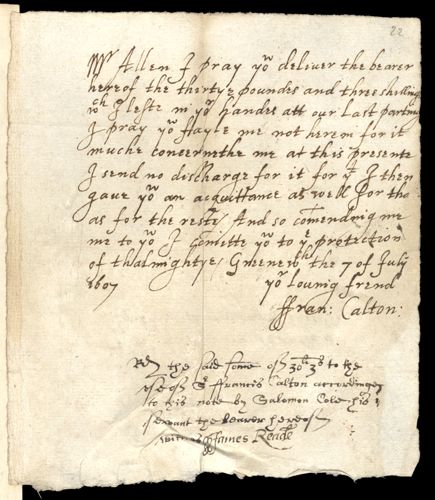 22
Mr Allen I pray yo deliver the bearer
hereof the thirtye poundes and three shillings
wch I lefte in yor handes att our last parting
I pray yo fayle me not herein for it
muche concernethe me at this presente
I send no discharge for it for yt I then
gaue yo an acquittance as well for tha
as for the reste / And so comending me
me to yo I comitte yo to ye protection
of thalmightye / Grenewch the 7 of July
1607
yor loving frend
ffran: Calton:
Rd the said some of 30li 3s to the
use of Sr ffrancis Calton accordinge
to his note by Salomon Cole his
servant the bearer hereof
witnes James Reade